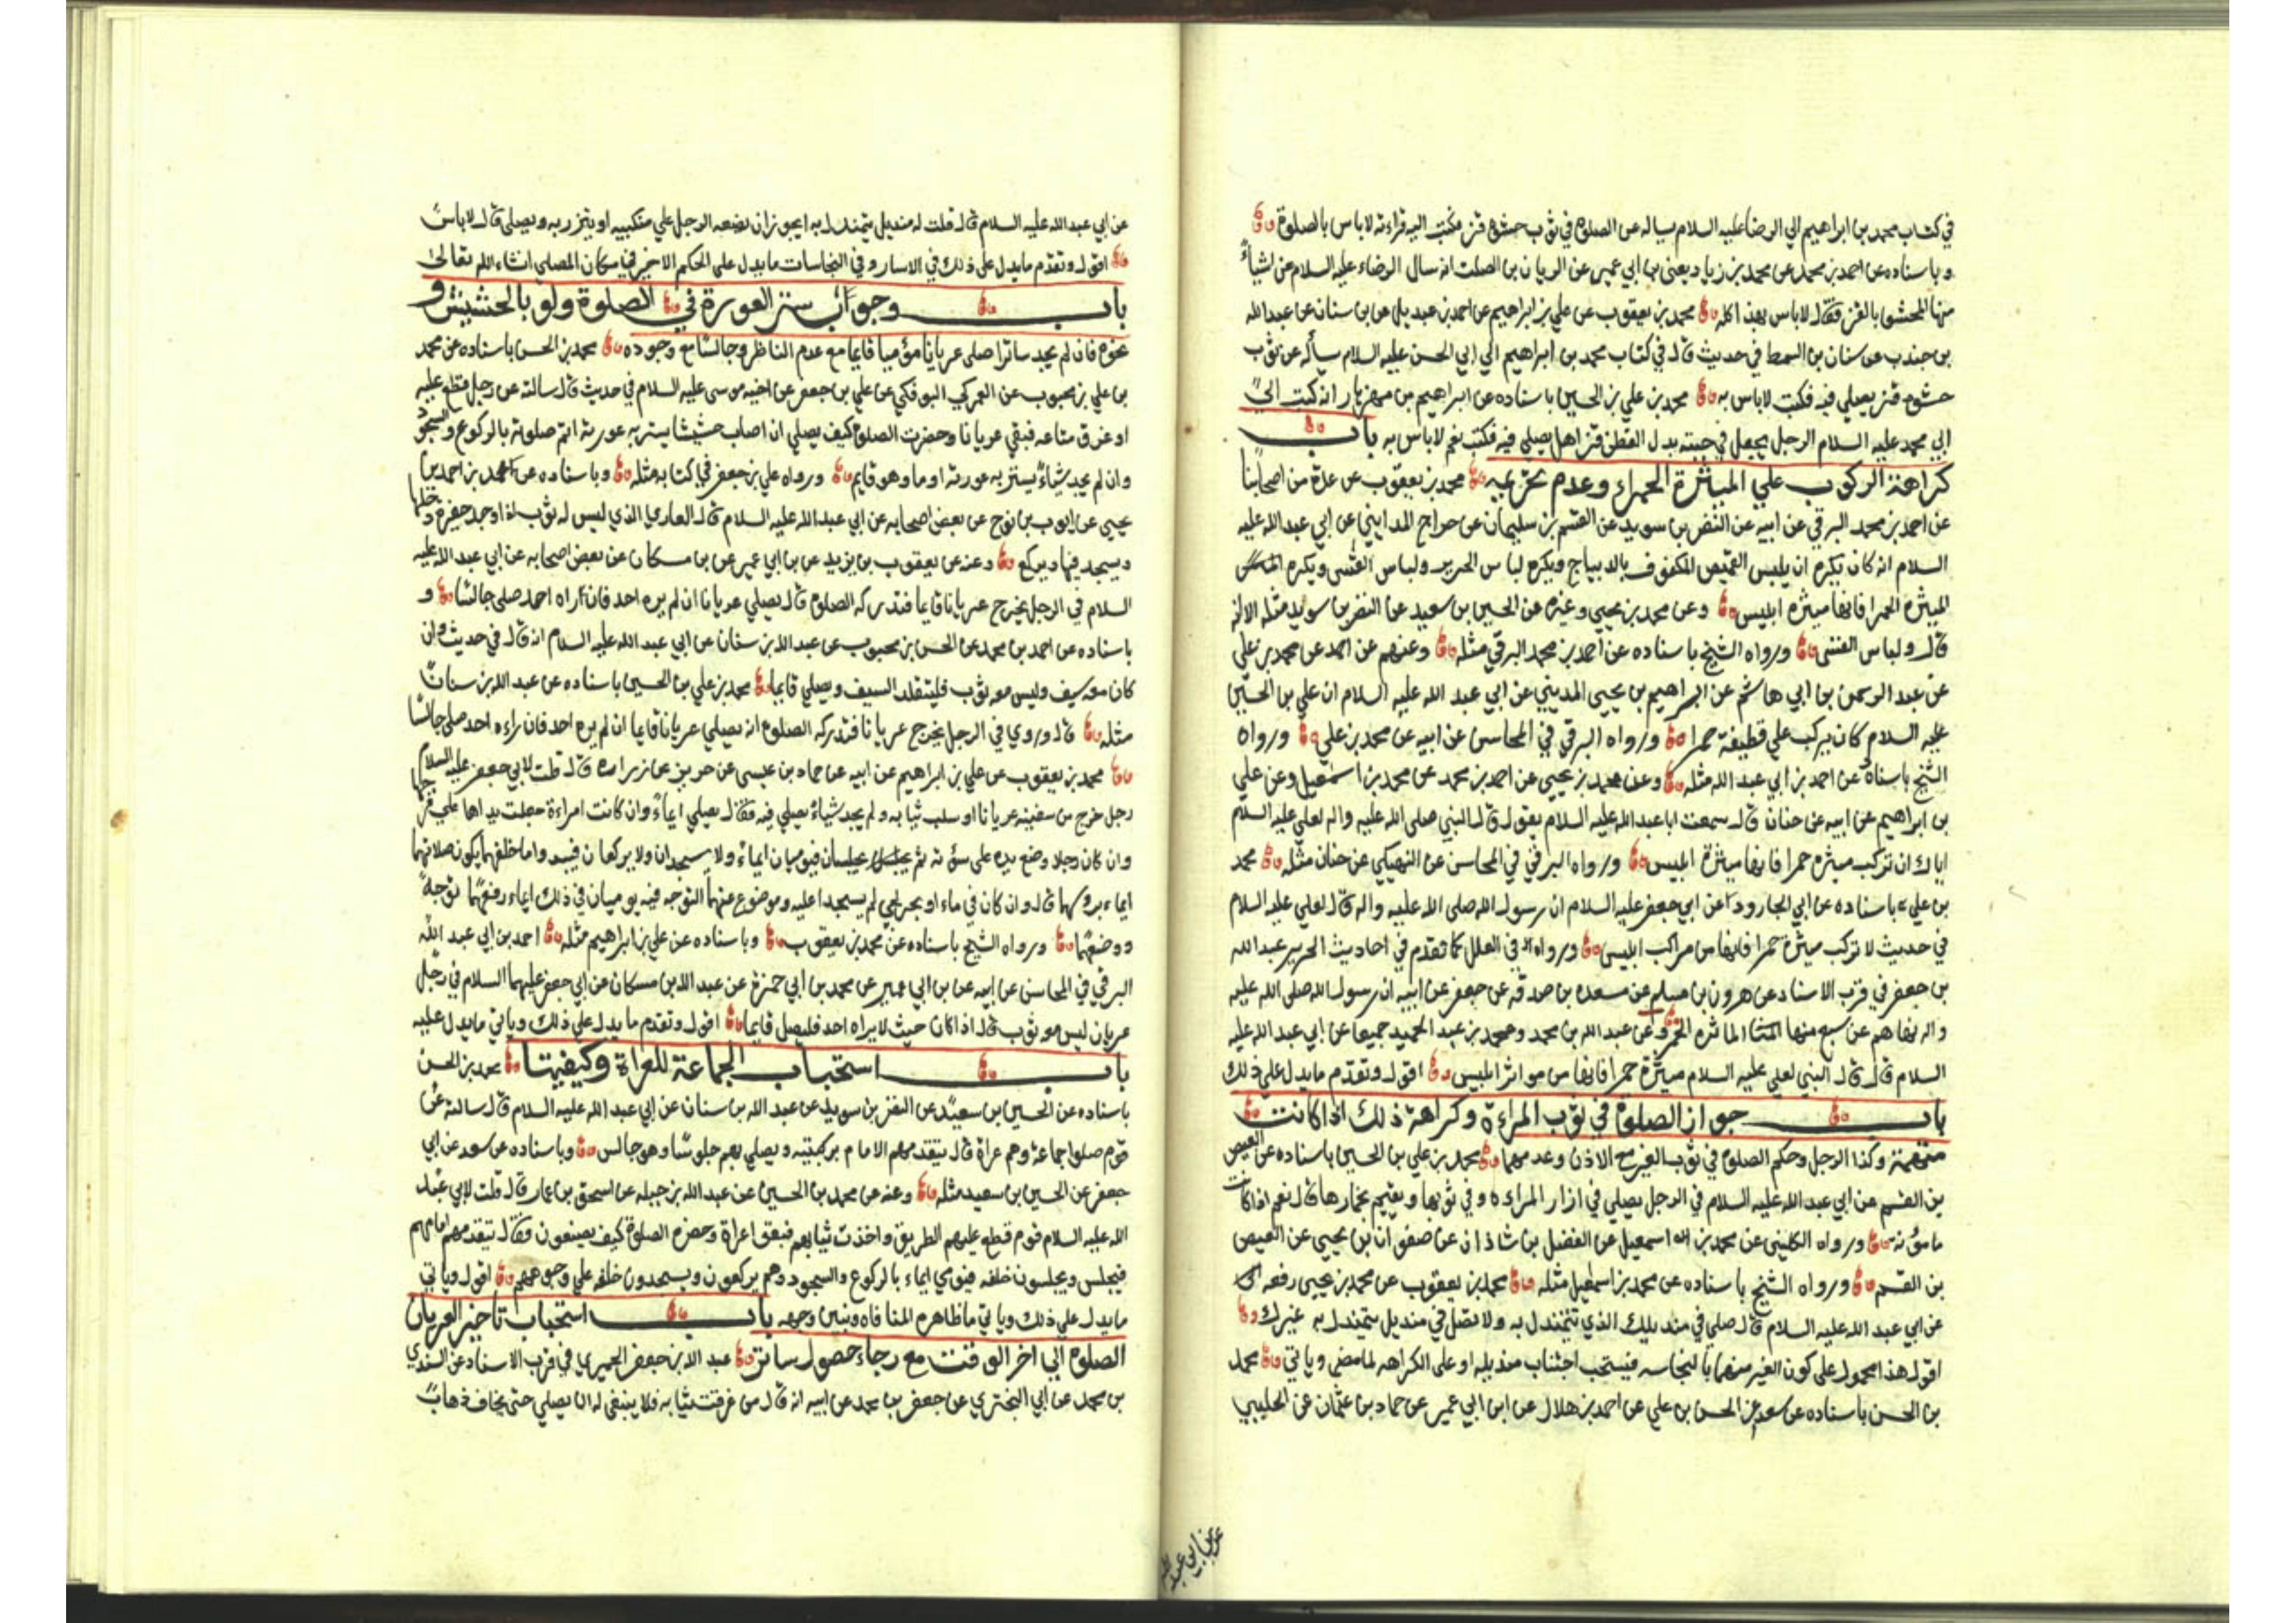 في كتاب محمد بن ابراهيم الي الرضا عليه السلام يساله عن الصلوة في ثوب حشوه قز فكتب اليه قراءته لاباس بالصلوة
وباسناده عن احمد بن محمد عن محمد بن زياد يعني بن ابي عمير عن الريان بن الصلت انه سال الرضاء عليه السلام عن اشياء
منها المحشو بالقز فقال لاباس بهذا كله محمد بن يعقوب عن علي بن ابراهيم عن احمد بن عبديل عن بن سنان عن عبدالله
بن جندب عن سنان بن السمط في حديث قال في كتاب محمد بن ابراهيم الي ابي الحسن عليه السلام يسأله عن ثوب
حشوه قز يصلي فيه فكتب لاباس به محمد بن علي بن الحسين باسناده عن ابراهيم بن مهزيار انه كتب الي
ابي محمد عليه السلام الرجل يجعل في جبته بدل القطن قزا هل يصلي فيه فكتب نعم لاباس به باب
كراهة الركوب علي الميثرة الحمراء وعدم تحريمه محمد بن يعقوب عن عدة من اصحابنا
عن احمد بن محمد البرقي عن ابيه عن النضر بن سويد عن القسم بن سليمان عن جراح المدايني عن ابي عبدالله عليه
السلام انه كان يكره ان يلبس القميص المكفوف بالديباج ويكره لباس الحرير ولباس القسى ويكره
الميثره الحمرا فانها ميثره ابليس وعن محمد بن يحيي وغيره عن الحسين بن سعيد عن النضر بن سويد مثله الا انه
قال ولباس القسى ورواه الشيخ باسناده عن احمد بن محمد البرقي مثله وعنهم عن احمد عن محمد بن علي
عن عبد الرحمن بن ابي هاشم عن ابراهيم بن يحيي المديني عن ابي عبد الله عليه السلام ان علي بن الحسين
عليه السلام كان يركب علي قطيفة حمرا ورواه البرقي في المحاسن عن ابيه عن محمد بن علي ورواه
الشيخ باسناده عن احمد بن ابي عبد الله مثله وعن محمد بن يحيي عن احمد بن محمد عن محمد بن اسمعيل وعن علي
بن ابراهيم عن ابيه عن حنان قال سمعت ابا عبد الله عليه السلام يقول قال النبي صلى الله عليه واله لعلي عليه السلام
اياك ان تركب ميثره حمرا فانها ميثرة ابليس ورواه البرقي في المحاسن عن النهيكي عن حنان مثله محمد
بن علي باسناده عن ابي الجارود عن ابي جعفر عليه السلام ان رسول الله صلى الله عليه واله قال لعلي عليه السلام
في حديث لا تركب ميثرة حمرا فانها من مراكب ابليس ورواه في العلل كما تقدم في احاديث الحرير عبدالله
بن جعفر في قرب الاسناد عن هرون بن مسلم عن مسعده بن صدقه عن جعفر عن ابيه ان رسول الله صلى الله عليه
واله نهاهم عن سبع منها الماثره الحمر وعن عبد الله بن محمد ومحمد بن عبد الحميد جميعا عن ابي عبد الله عليه
السلام قال قال النبي لعلي عليه السلام ميثرة حمرا فانها من مواثر ابليس اقول وتقدم ما يدل علي ذلك
باب جواز الصلوة في ثوب المراءة وكراهة ذلك اذا كانت
متهمة وكذا الرجل وحكم الصلوة في ثوب الغير مع الاذن وعدمها محمد بن علي بن الحسين باسناده عن العيص
بن القسم عن ابي عبد الله عليه السلام في الرجل يصلي في ازار المراءه وفي ثوبها ويعتم بخمارها قال نعم اذا كانت
مامونه ورواه الكليني عن محمد بن اسمعيل عن الفضل بن شاذان عن صفوان بن يحيي عن العيص
بن القسم ورواه الشيخ باسناده عن محمد بن اسمعيل مثله محمد بن يعقوب عن محمد بن يحيي رفعه الى
عن ابي عبد الله عليه السلام قال صلي في منديلك الذي تتمندل به ولا تصل في منديل يتمندل به غيرك
اقول هذا محمول على كون الغير متهما بالنجاسه فيستحب اجتناب منديله او على الكراهه لما مضى وياتي محمد
بن الحسن باسناده عن سعد عن الحسن بن علي عن احمد بن هلال عن ابن ابي عمير عن حماد بن عثمان عن الحلبي
عن ابي عبد الله
عن ابي عبد الله عليه السلام قال قلت له منديل يتمندل به ايجوز ان يضعه الرجل علي منكبيه او يتزر به ويصلي قال لاباس
اقول وتقدم مايدل على ذلك في الاسار وفي النجاسات مايدل على الحكم الاخير في مكان المصلي انشاء الله تعالى
باب وجواب ستر العورة في الصلوة ولو بالحشيش و
نحوه فان لم يجد ساترا صلى عريانا موميا قايما مع عدم الناظر وجالسا مع وجوده محمد بن الحسن باسناده عن محمد
بن علي بن محبوب عن العمركي البوفكي عن علي بن جعفر عن اخيه موسى عليه السلام في حديث قال سالته عن رجل قطع عليه
او غرق متاعه فبقي عريانا وحضرت الصلوة كيف يصلي ان اصاب حشيشا يستر به عورته اتم صلوته بالركوع والسجود
وان لم يجد شياء يستر به عورته اوما وهو قايم ورواه علي بن جعفر في كتابه مثله وباسناده عن محمد بن احمد بن
يحيي عن ايوب بن نوح عن بعض اصحابه عن ابي عبد الله عليه السلام قال العاري الذي ليس له ثوب اذا وجد حفيرة دخلها
ويسجد فيها ويركع وعنه عن يعقوب بن يزيد عن بن ابي عمير عن بن مسكان عن بعض اصحابه عن ابي عبد الله عليه
السلام في الرجل يخرج عريانا قايما فتدركه الصلوة قال يصلي عريانا ان لم يره احد فان راه احد صلى جالسا و
باسناده عن احمد بن محمد عن الحسن بن محبوب عن عبد الله بن سنان عن ابي عبد الله عليه السلام انه قال في حديث وان
كان معه سيف وليس معه ثوب فليتقلد السيف ويصلي قايما محمد بن علي بن الحسين باسناده عن عبد الله بن سنان
مثله قال وروي في الرجل يخرج عريانا فتدركه الصلوة انه يصلي عريانا قايما ان لم يره احد فان راءه احد صلى جالسا
محمد بن يعقوب عن علي بن ابراهيم عن ابيه عن حماد بن عيسى عن حريز عن زراره قال قلت لابي جعفر عليه السلام
رجل خرج من سفينه عريانا او سلب ثيابه ولم يجد شياء يصلي فيه فقال يصلي ايماء وان كانت امراءة جعلت يداها علي فرجها
وان كان رجلا وضع يده على سؤته ثم يجلسان فيوميان ايماء ولا يسجدان ولا يركعان فيبدو اما خلفهما يكون صلاتهما
ايماء بروسهما قال وان كان في ماء او بحر لجي لم يسجدا عليه وموضوع عنهما التوجه فيه يوميان في ذلك ايماء رفعهما توجه
ووضعهما ورواه الشيخ باسناده عن محمد بن يعقوب وباسناده عن علي بن ابراهيم مثله احمد بن ابي عبد الله
البرقي في المحاسن عن ابيه عن بن ابي عمير عن محمد بن ابي حمزة عن عبد الله بن مسكان عن ابي جعفر عليهما السلام في رجل
عريان ليس معه ثوب قال اذا كان حيث لا يراه احد فليصل قايما اقول وتقدم ما يدل علي ذلك وياتي مايدل عليه
باب استحباب الجماعة للعراة وكيفيتها محمد بن الحسن
باسناده عن الحسين بن سعيد عن النضر بن سويد عن عبد الله بن سنان عن ابي عبد الله عليه السلام قال سالته عن
قوم صلوا جماعة وهم عراة قال يتقدمهم الامام بركبتيه ويصلي بهم جلوسا وهو جالس وباسناده عن سعد عن ابي
جعفر عن الحسين بن سعيد مثله وعنه عن محمد بن الحسين عن عبد الله بن جبيله عن اسحق بن عمار قال قلت لابي عبد
الله عليه السلام قوم قطع عليهم الطريق واخذت ثيابهم فبقوا عراة وحضره الصلوة كيف يصنعون فقال يتقدمهم امامهم
فيجلس ويجلسون خلفه فيومي ايماء بالركوع والسجود وهم يركعون ويسجدون خلفه علي وجوههم اقول وياتي
مايدل علي ذلك وياتي ماظاهره المنافاه ونبين وجهه باب استحباب تاخير العريان
الصلوة الي اخر الوقت مع رجاء حصول ساتر عبد الله بن جعفر الحميري في قرب الاسناد عن السندي
بن محمد عن ابي البختري عن جعفر بن محمد عن ابيه انه قال من غرقت ثيابه فلا ينبغي له ان يصلي حتى يخاف ذهاب